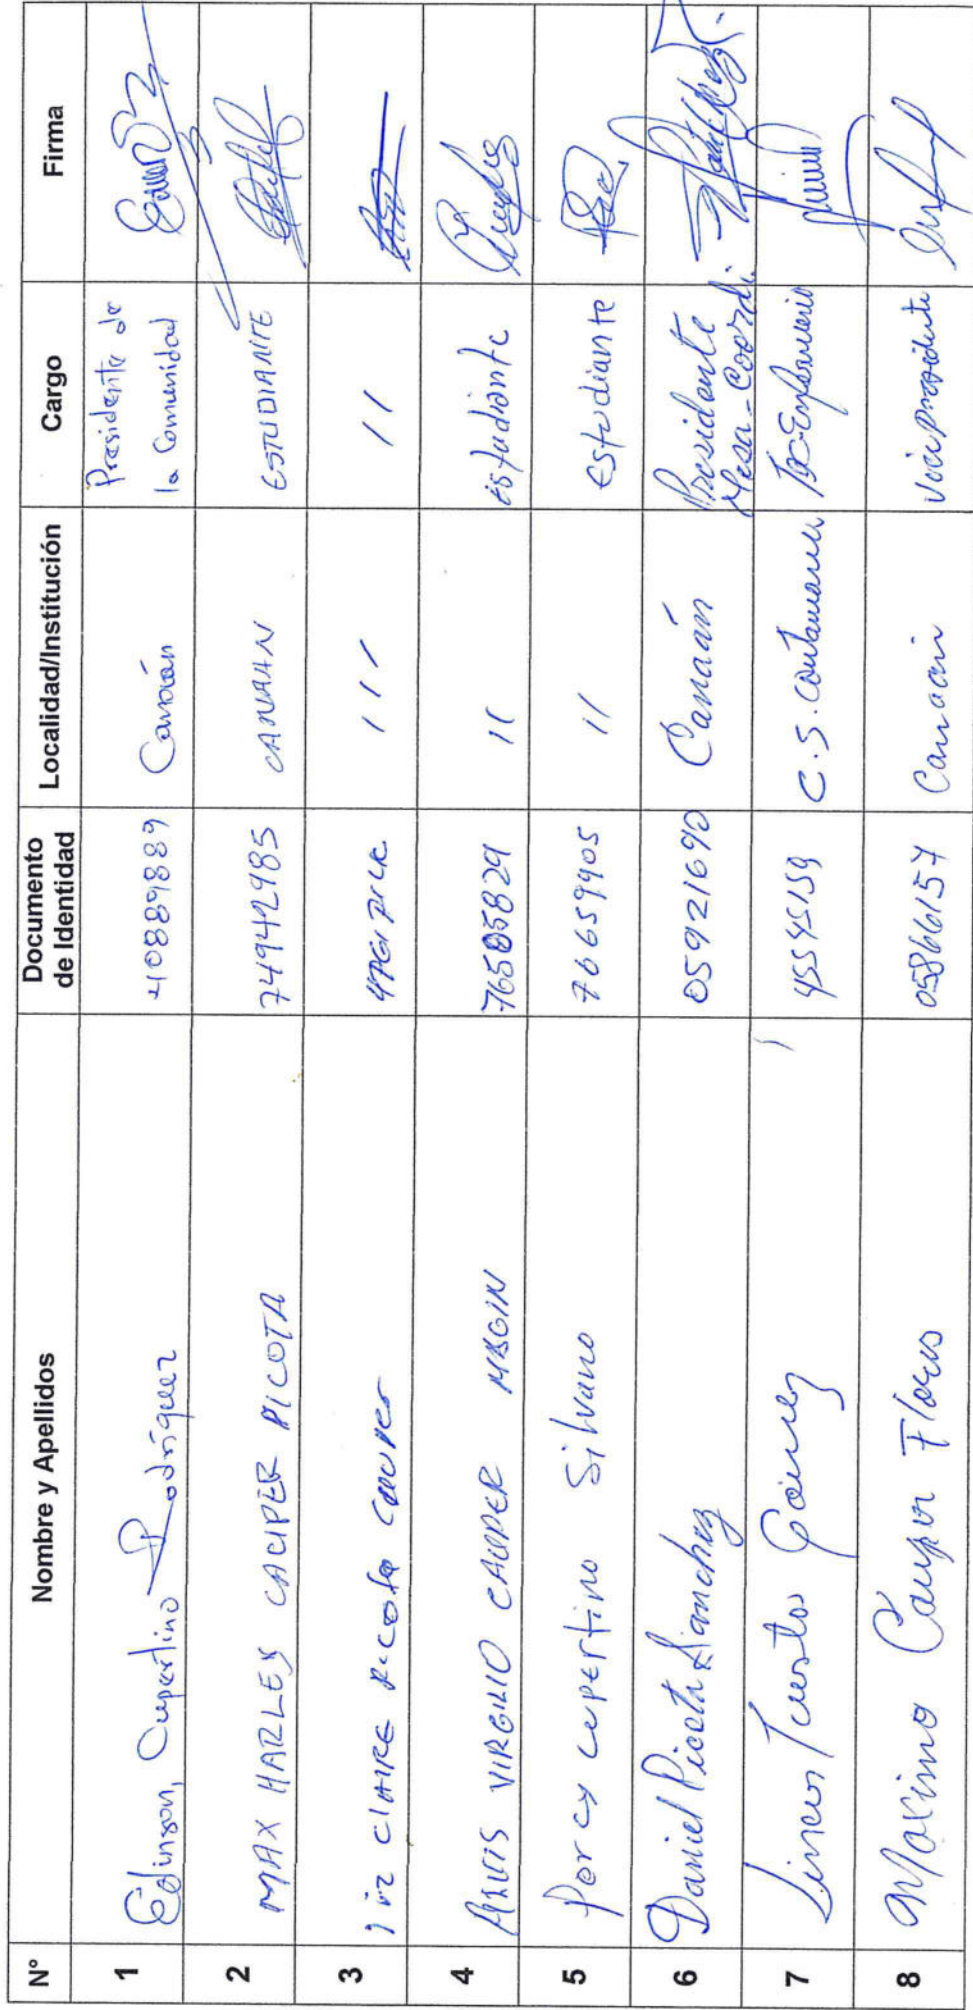 N° Nombre y Apellidos Documento de Identidad Localidad/Institución Cargo Firma
1 Edinson, Cupertino Rodríguez 40889889 Canaán Presidente de la Comunidad
2 MAX HARLEY CAUPER PICOTA 74942985 CANAAN ESTUDIANTE
3 CLAIRE Picota Cauper / / / / /
4 VIRGILIO CAUPER 76505829 11 estudiante
5 Percy cupertino Silvano 76659905 11 estudiante
6 Daniel Picota Sanchez 05921690 Canaán Presidente Mesa-Coordi.
7 Gómez 45545159 C.S. Contamana Tec-Enfermería
8 Maximo Cauper Flores 05866157 Canaan Vicepresidente